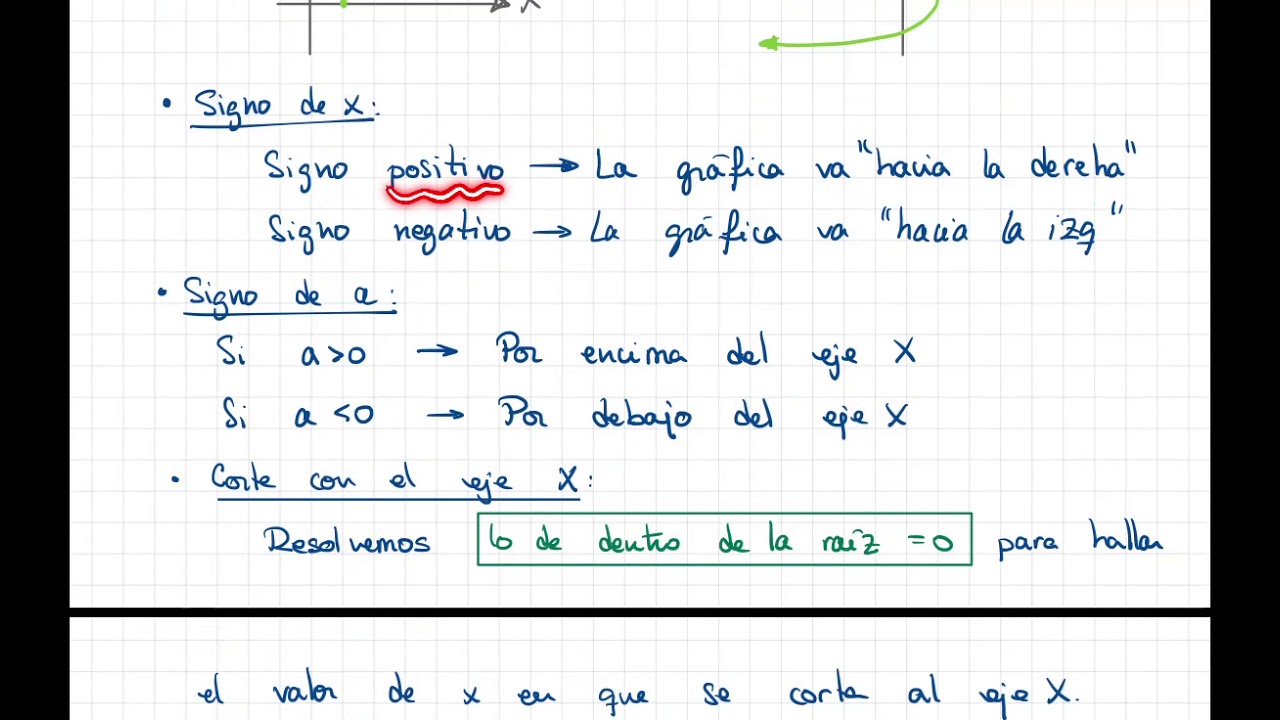 X
• Signo de x:
Signo positivo → La gráfica va "hacia la dereha"
Signo negativo → La gráfica va "hacia la izq"
• Signo de a:
Si a>0 → Por encima del eje X
Si a <0 → Por debajo del eje X
• Corte con el eje X:
Resolvemos lo de dentro de la raíz =0 para hallar
el valor de x en que se corta al eje X.